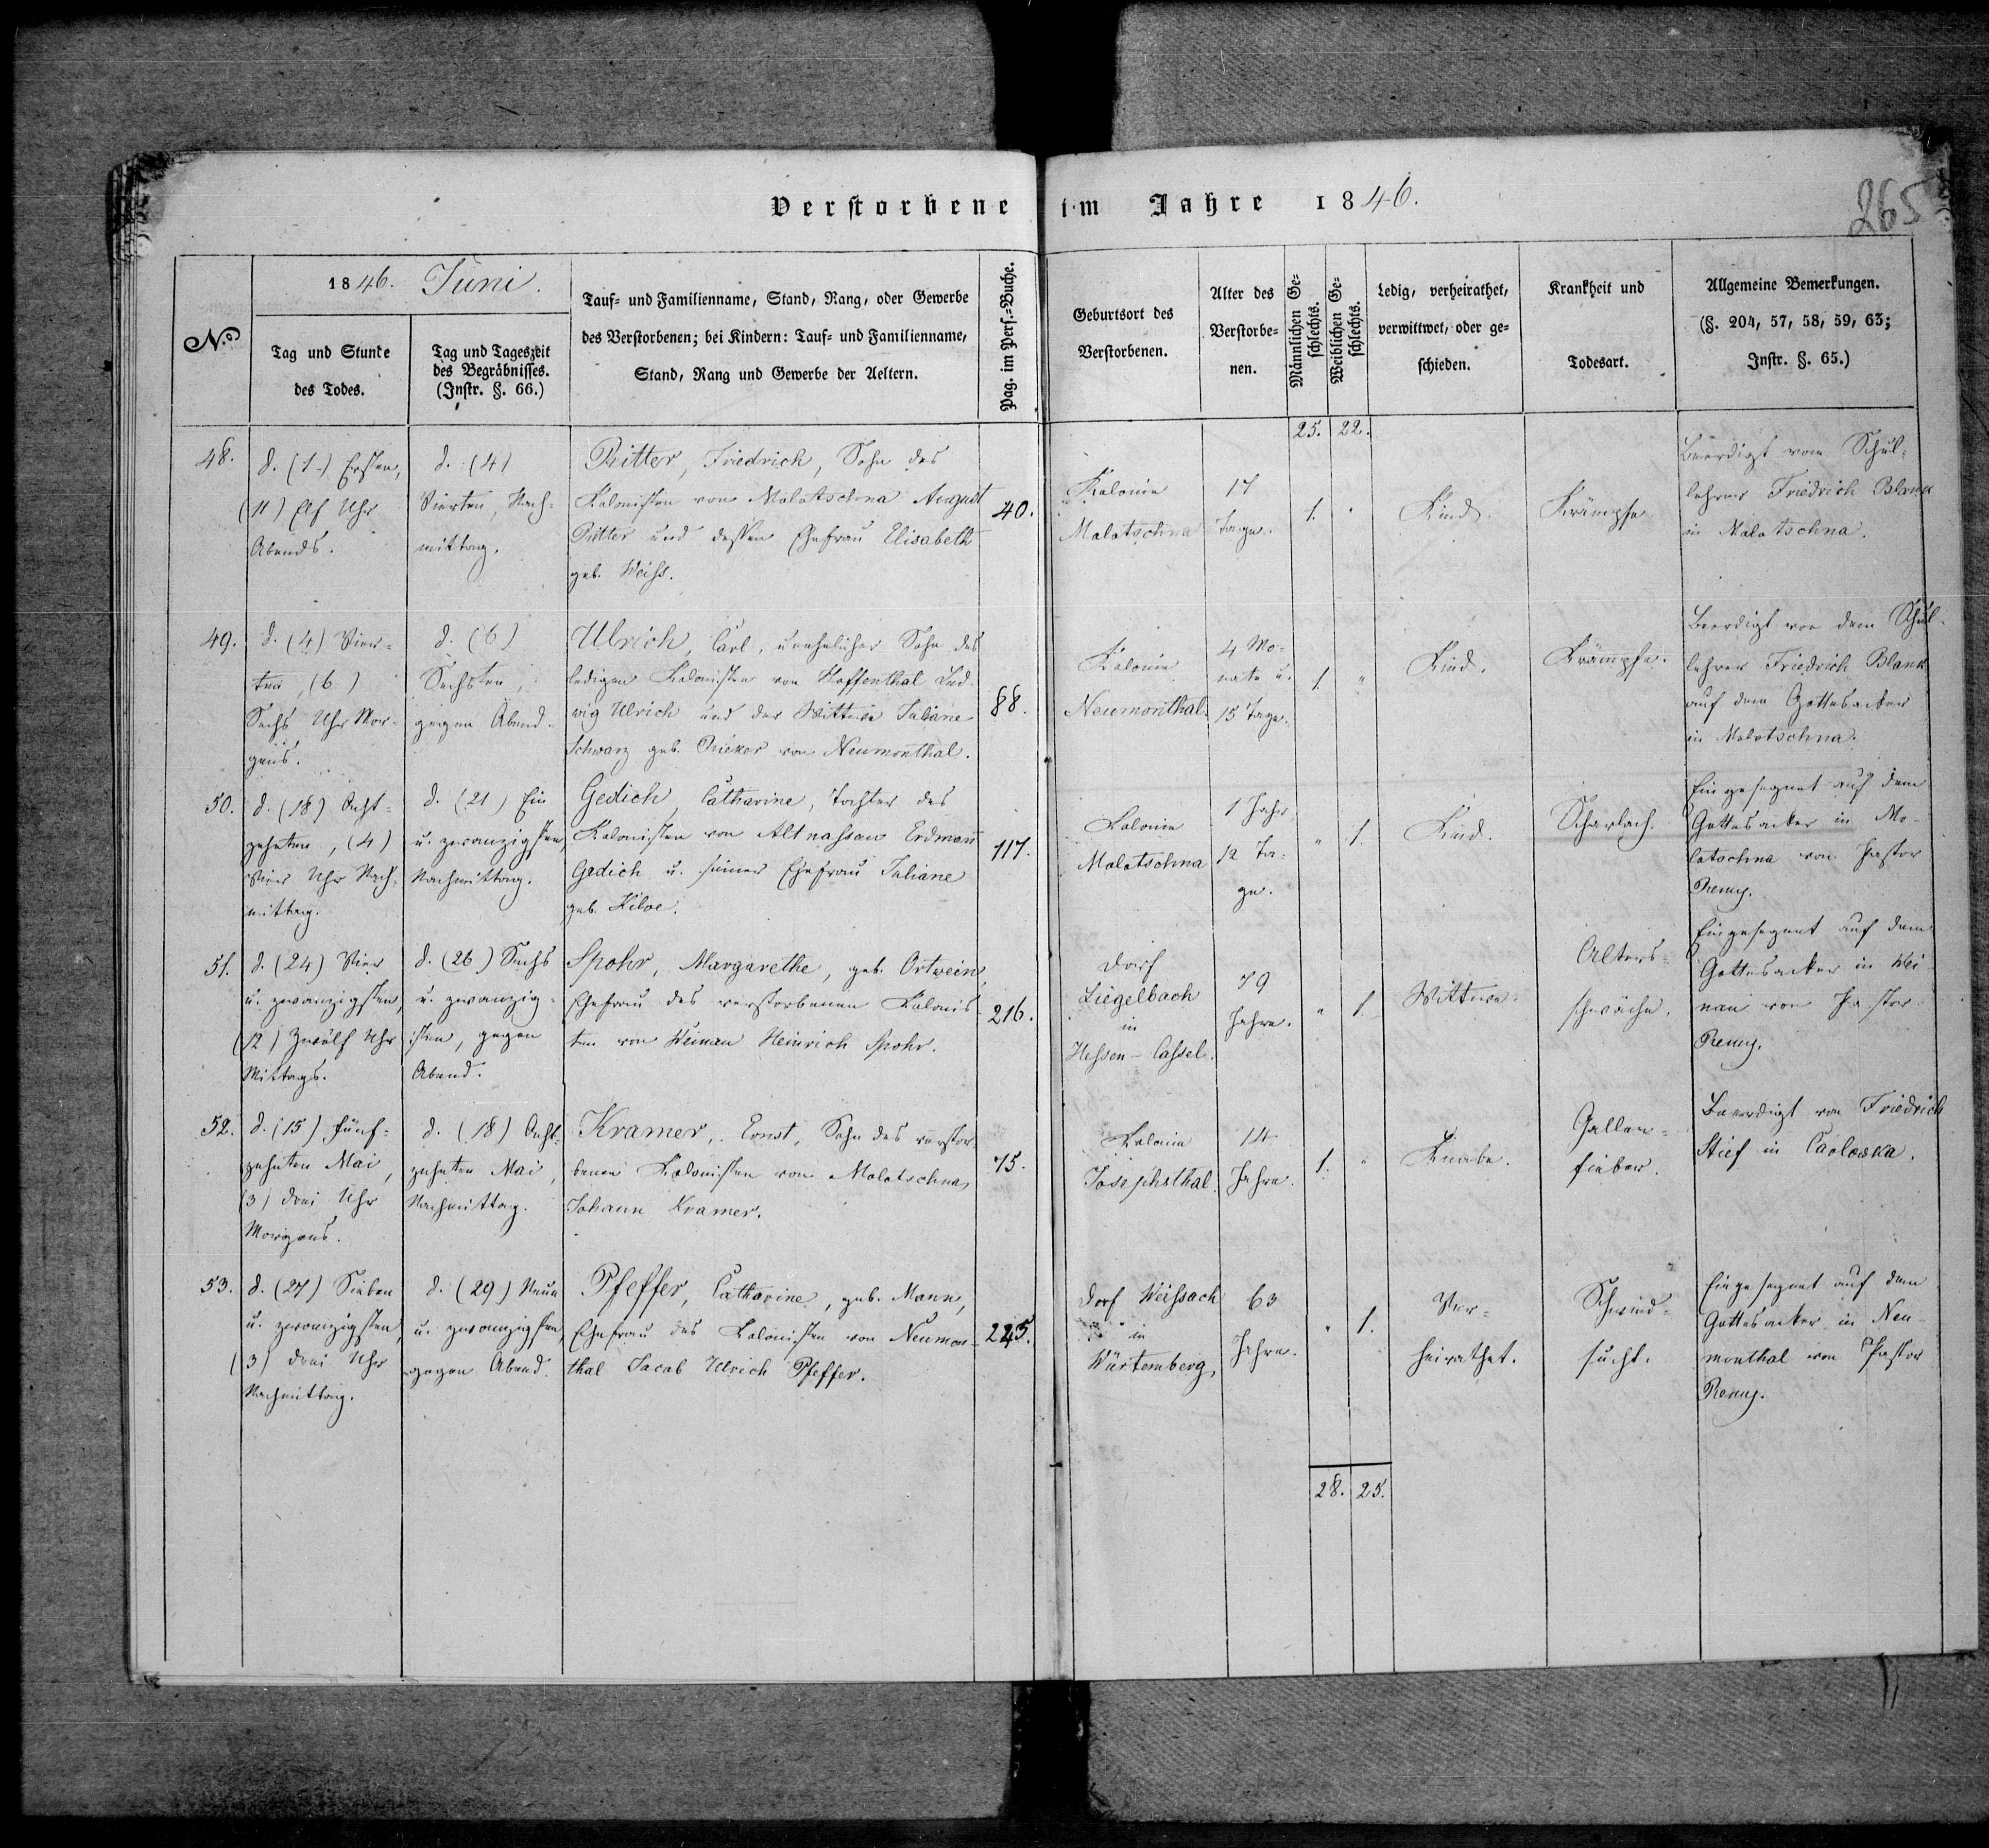 Verstorbene im Jahre 1846.
265
No.
1846. Juni.
Tag und Stunde
des Todes.
Tag und Tageszeit
des Begräbnisses.
(Instr. §. 66.)
Tauf- und Familienname, Stand, Rang, oder Gewerbe
des Verstorbenen; bei Kindern: Tauf- und Familienname,
Stand, Rang und Gewerbe der Aeltern.
Pag. im Pers.-Buche.
Geburtsort des
Verstorbenen.
Alter des
Verstorbe-
nen.
Männlichen Ge-
schlechts.
Weiblichen Ge-
schlechts.
Ledig, verheirathet,
verwittwet, oder ge-
schieden.
Krankheit und
Todesart.
Allgemeine Bemerkungen.
(§. 204, 57, 58, 59, 63;
Instr. §. 65.)
25. 22.
48.
d. (1.) Ersten,
(11) Elf Uhr
Abends.
d. (4)
Vierten, Nach-
mittag.
Ritter, Friedrich, Sohn des
Kolonisten von Molotschna August
Ritter und dessen Ehefrau Elisabeth
geb. Weiss.
40.
Kolonie
Molotschna
17
Tage.
1. "
Kind.
Krämpfe
Beerdigt vom Schul-
lehrer Friedrich Blank
in Molotschna.
49.
d. (4) Vier-
ten, (6)
Sechs Uhr Mor-
gens.
d. (6)
Sechsten,
gegen Abend.
Ulrich, Carl, unehelicher Sohn des
ledigen Kolonisten von Hoffenthal Lud-
wig Ulrich und der Wittwe Juliane
Schwarz geb. Rieker von Neumonthal.
88.
Kolonie
Neumonthal.
4 Mo-
nate u.
15 Tage.
1. "
Kind.
Krämpfe.
Beerdigt von dem Schul-
lehrer Friedrich Blank
auf dem Gottesacker
in Molotschna.
50.
d. (18) Acht-
zehnten, (4)
Vier Uhr Nach-
mittag.
d. (21) Ein
u. zwanzigsten
Nachmittag.
Gedich, Catharine, Tochter des
Kolonisten von Altnassau Erdmann
Gedich u. seiner Ehefrau Juliane
geb. Kilve.
117.
Kolonie
Molotschna
1 Jahr,
12 Ta-
ge.
" 1.
Kind.
Scharlach.
Eingesegnet auf dem
Gottesacker in Mo-
lotschna von Pastor
Remy.
51.
d. (24) Vier
u. zwanzigsten,
(12) Zwölf Uhr
Mittags.
d. (26) Sechs
u. zwanzig-
sten, gegen
Abend.
Spohr, Margarethe, geb. Ortwein,
Ehefrau des verstorbenen Kolonis-
ten von Weinau Heinrich Spohr.
216.
Dorf
Liegelbach
in
Hessen-Cassel.
79
Jahre.
" 1.
Wittwe.
Alters-
schwäche.
Eingesegnet auf dem
Gottesacker in Wei-
nau von Pastor
Remy.
52.
d. (15) Fünf-
zehnten Mai,
(3) drei Uhr
Morgens.
d. (18) Acht-
zehnten Mai,
Nachmittag.
Kramer, Ernst, Sohn des verstor-
benen Kolonisten von Molotschna,
Johann Kramer.
75.
Kolonie
Josephsthal.
14
Jahre.
1. "
Knabe.
Gallen-
fieber.
Beerdigt von Friedrich
Stief in Carlowka.
53.
d. (27) Sieben
u. zwanzigsten,
(3) drei Uhr
Nachmittag.
d. (29) Neun
u. zwanzigsten,
gegen Abend.
Pfeffer, Catharine, geb. Mann,
Ehefrau des Kolonisten von Neumon-
thal Jacob Ulrich Pfeffer.
225.
Dorf Weissach
in
Würtemberg,
63
Jahre.
" 1.
Ver-
heirathet.
Schwind-
sucht.
Eingesegnet auf dem
Gottesacker in Neu-
monthal von Pastor
Remy.
28. 25.